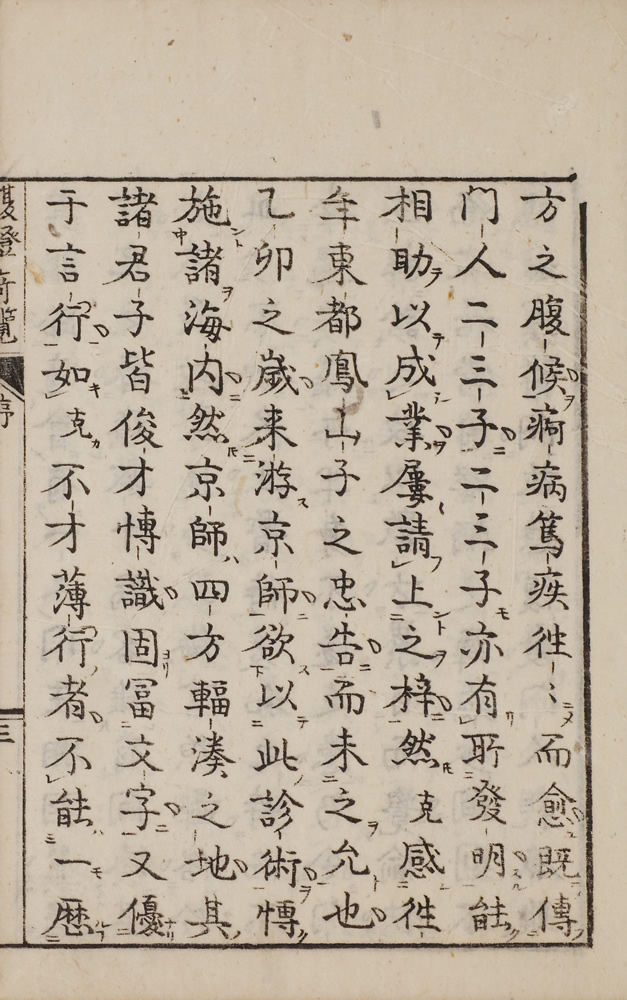 方之腹候痾病篤疾徃〻而愈既傳
門人二三子二三子亦有所發明能
相助以成業屢請上之梓然克感徃
年東都鳳山子之忠告而未之允也
乙卯之歳来游京師欲以此診術愽
施諸海内然京師四方輻湊之地其
諸君子皆俊才愽識固冨文字又優
于言行如克不才薄行者不能一歴
腹證奇覽
序
三